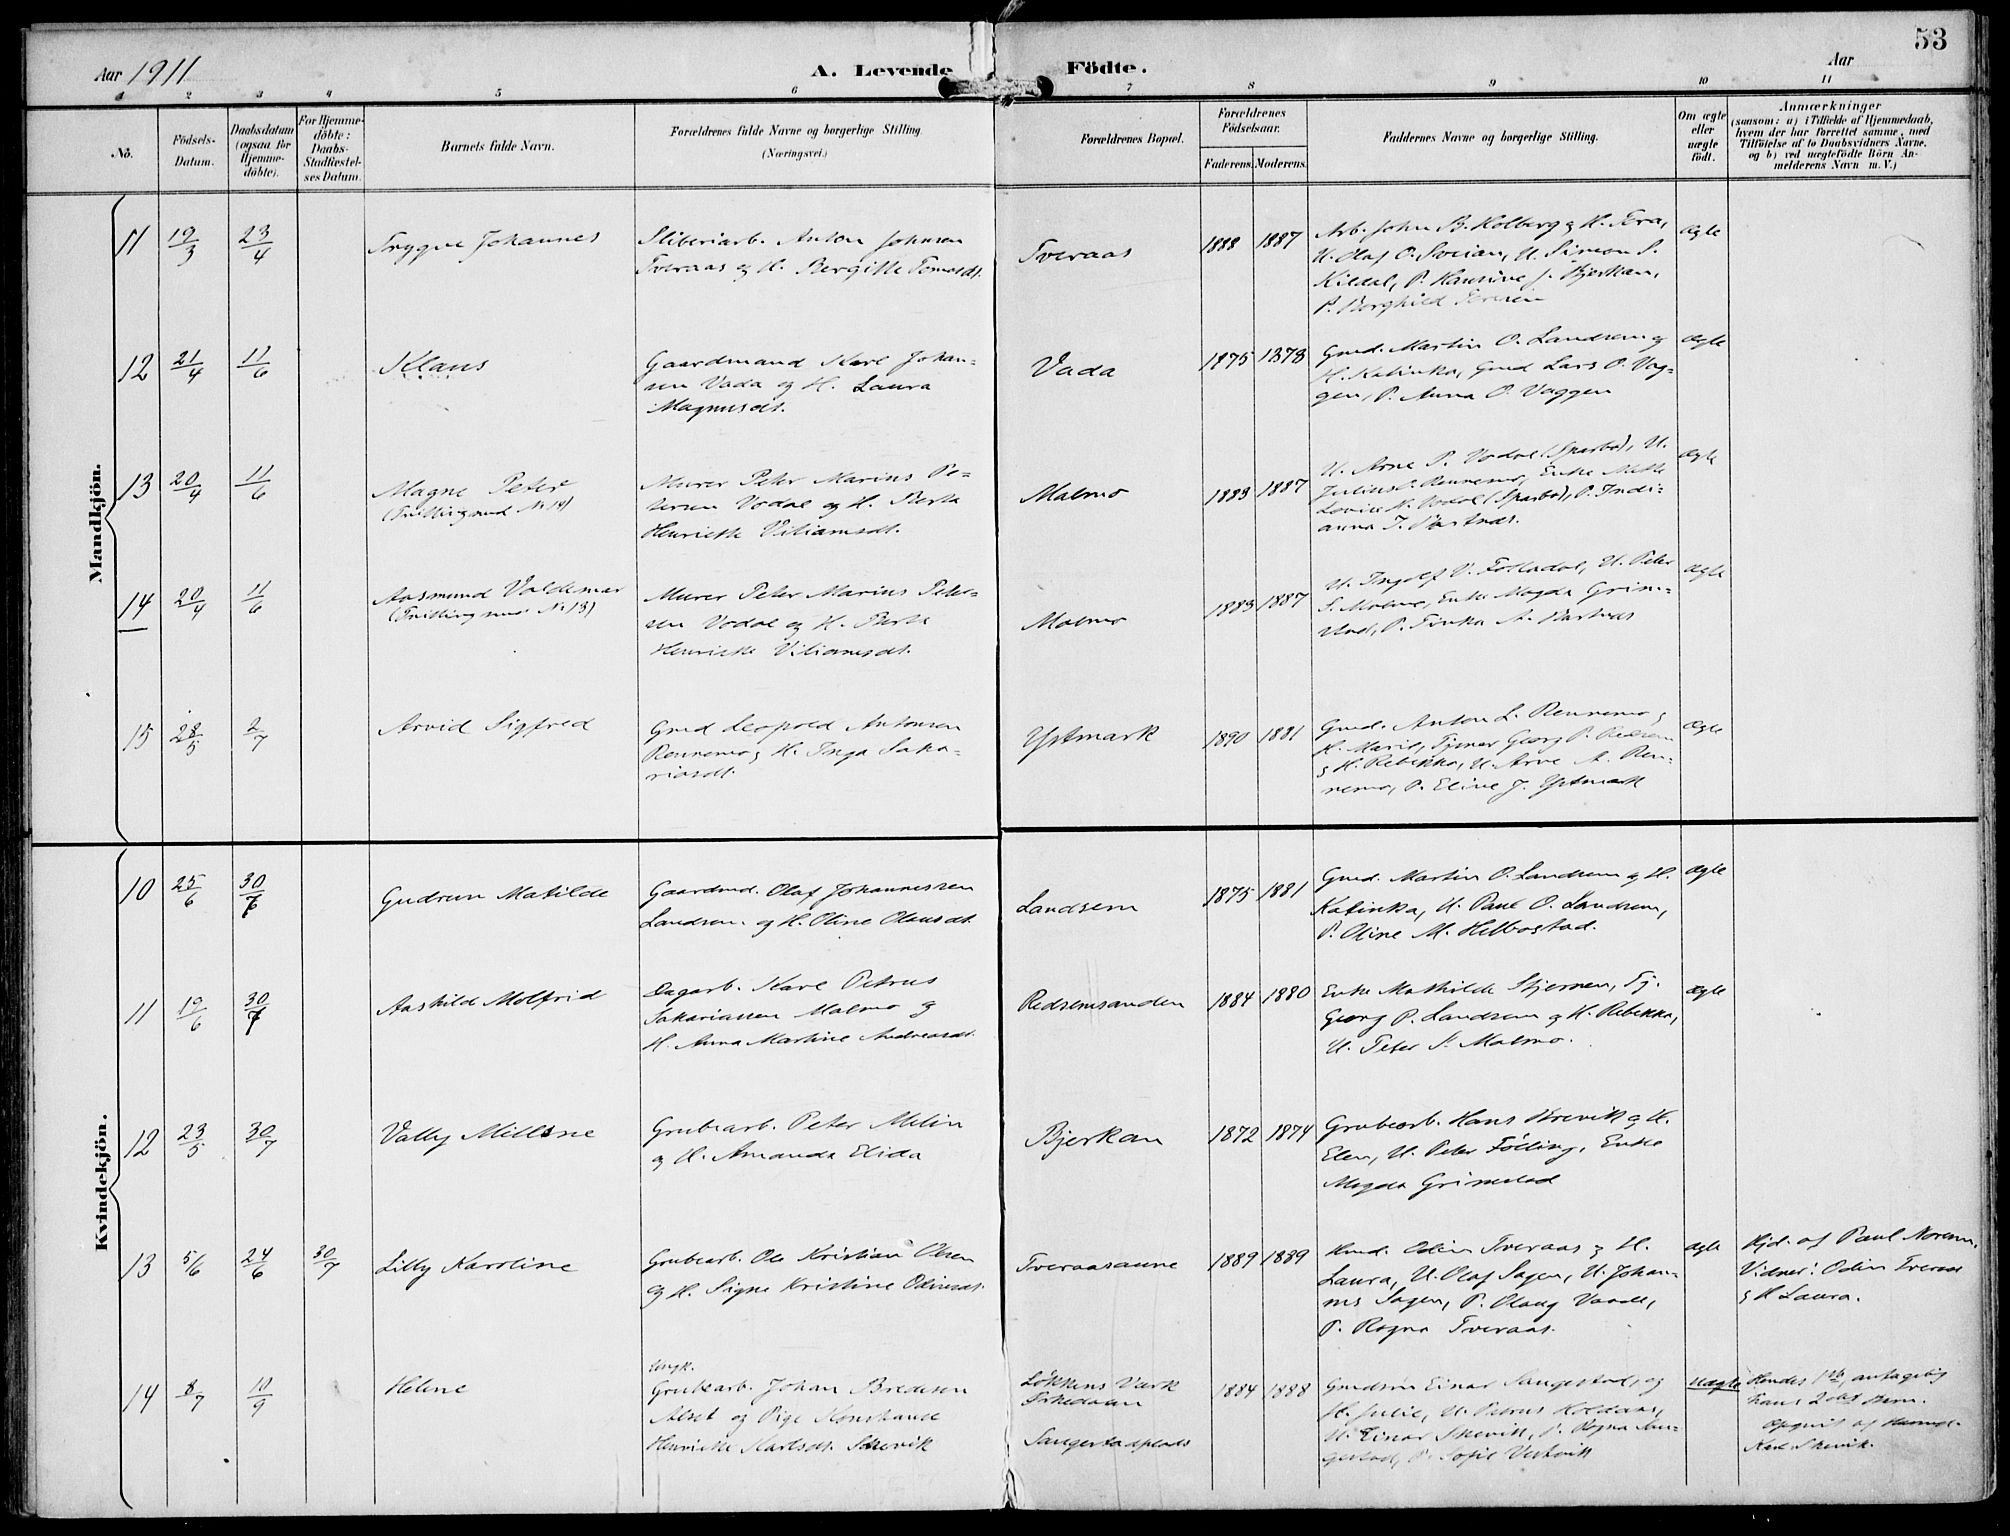 53
Aar 1911
A. Levende Födte.
Aar
1 2 3 4 5 6 7 8 9 10 11
No.
Födsels-
Datum.
Daabsdatum
(ogsaa for
Hjemme-
döbte).
For Hjemme-
döbte:
Daabs-
Stadfæstel-
ses Datum.
Barnets fulde Navn.
Forældrenes fulde Navne og borgerlige Stilling.
(Næringsvei.)
Forældrenes Bopæl.
Forældrenes
Födselsaar.
Faderens. Moderens.
Faddernes Navne og borgerlige Stilling.
Om ægte
eller
uægte
födt.
Anmærkninger
(saasom: a) i Tilfælde af Hjemmedaab,
hvem der har forrettet samme, med
Tilföielse af to Daabsvidners Navne.
og b) ved uægtefödte Börn An-
melderens Navn m. V.)
Mandkjön.
11 19/3 23/4
Trygve Johannes
Sliberiarb. Anton Johnsen
Tveraas og H. Bergitte Tomasdt.
Tveraas
1888 1887
Arb. John B. Holberg og H.
U. Olaf O. Sveian, U. Simon S.
Kildal, P. Hansine J. Bjerkan,
P. Borghild
ægte
12 21/4 11/6
Klaus
Gaardmand Karl Johan-
sen Vada og H. Laura
Magnusdt.
Vada
1875 1878
Gmd. Martin O. Landsem og
H. Katinka, Gmd Lars O. Vag-
gen, P. Anna O. Vaggen
ægte
13 20/4 11/6
Magne Peter
(Tvilling med Nr 14)
Murer Peter Marius Pe-
tersen Vodal og H. Berta
Henriette Viliamsdt.
Malmo
1883 1887
U. Arne P. Vodal (Sparbo), U.
Julius Rennemo, Enke Mette
Lovise N. Vodal (Sparbo), P. Indi-
anna J.
ægte
14 20/4 11/6
Aasmund Valdemar
(Tvilling med Nr 13)
Murer Peter Marius Peter-
sen Vodal og H. Berta
Henriette Viliamsdt.
Malmo
1883 1887
U. Ingolf V. Folladal, U. Peter
S. Malmo, Enke Magda Grim-
stad, P. Tinka A.
ægte
15 28/5 2/7
Arvid Sigfred
Gmd Leopold Antonsen
Rennemo og H. Inga Saka-
riasdt.
Ystmark
1890 1881
Gmd. Anton L. Rennemo og
H. Marie, Tjener Georg P.
og H. Rebekka, U. Arve A. Ren-
nemo, P. Eline J. Ystmark
Ægte
Kvindekjön.
10 25/6 30/7
Gudrun Matilde
Gaardmd. Olaf Johannessen
Landsem og H. Oline Olausdt.
Landsem
1875 1881
Gmd. Martin O. Landsem og H.
Katinka, U. Paul O. Landsem,
P. Oline M. Helbostad.
ægte
11 19/6 30/7
Aashild Molfrid
Dagarb. Karl Petrus
Sakariassen Malmo og
H. Anna Martine Andreasdt.
Redsemsanden
1884 1880
Enke Mathilde Stjernen, Tj.
Georg P. Landsem og H. Rebekka,
U. Peter S. Malmo.
ægte
12 23/5 30/7
Vally Millsne
Grubearb. Peter Melin
og H. Amanda Elida
Bjerkan
1872 1874
Grubearb. Hans Strevik og H.
Elen, U. Peter Fölling, Enke
Magda Grimstad
13 5/6 24/6 30/7
Lilly Karoline
Grubearb. Ole Kristian Olsen
og H. Signe Kristine Odinsdt.
Tveraasaune
1889 1889
Hmd. Odin Tveraas og H.
Laura, U. Olaf Sagen, U. Johan-
nes Sagen, P. Olaug Vaade,
P. Ragna Tveraas.
ægte
Hjd. af Paul Norem.
Vidner: Odin Tveraas
og H Laura.
14 8/7 10/9
Helene
Ungk.
Grubearb. Johan Bredesen
Alset og Pige Konstanse
Henriette Karlsdt. Skevik
Løkkens Værk
Orkedalen
Saugestadplads
1884 1888
Gmdsøn Einar Saugestad, og
H. Julie, U. Petrus Holdaas,
U. Einar Skevik, P. Ragna Sau-
gestad, P. Sofie Vestvik
uægte
Hendes 1ste, antagelig
hans 2det Barn.
Opgivet af Husmd.
Karl Skevik.